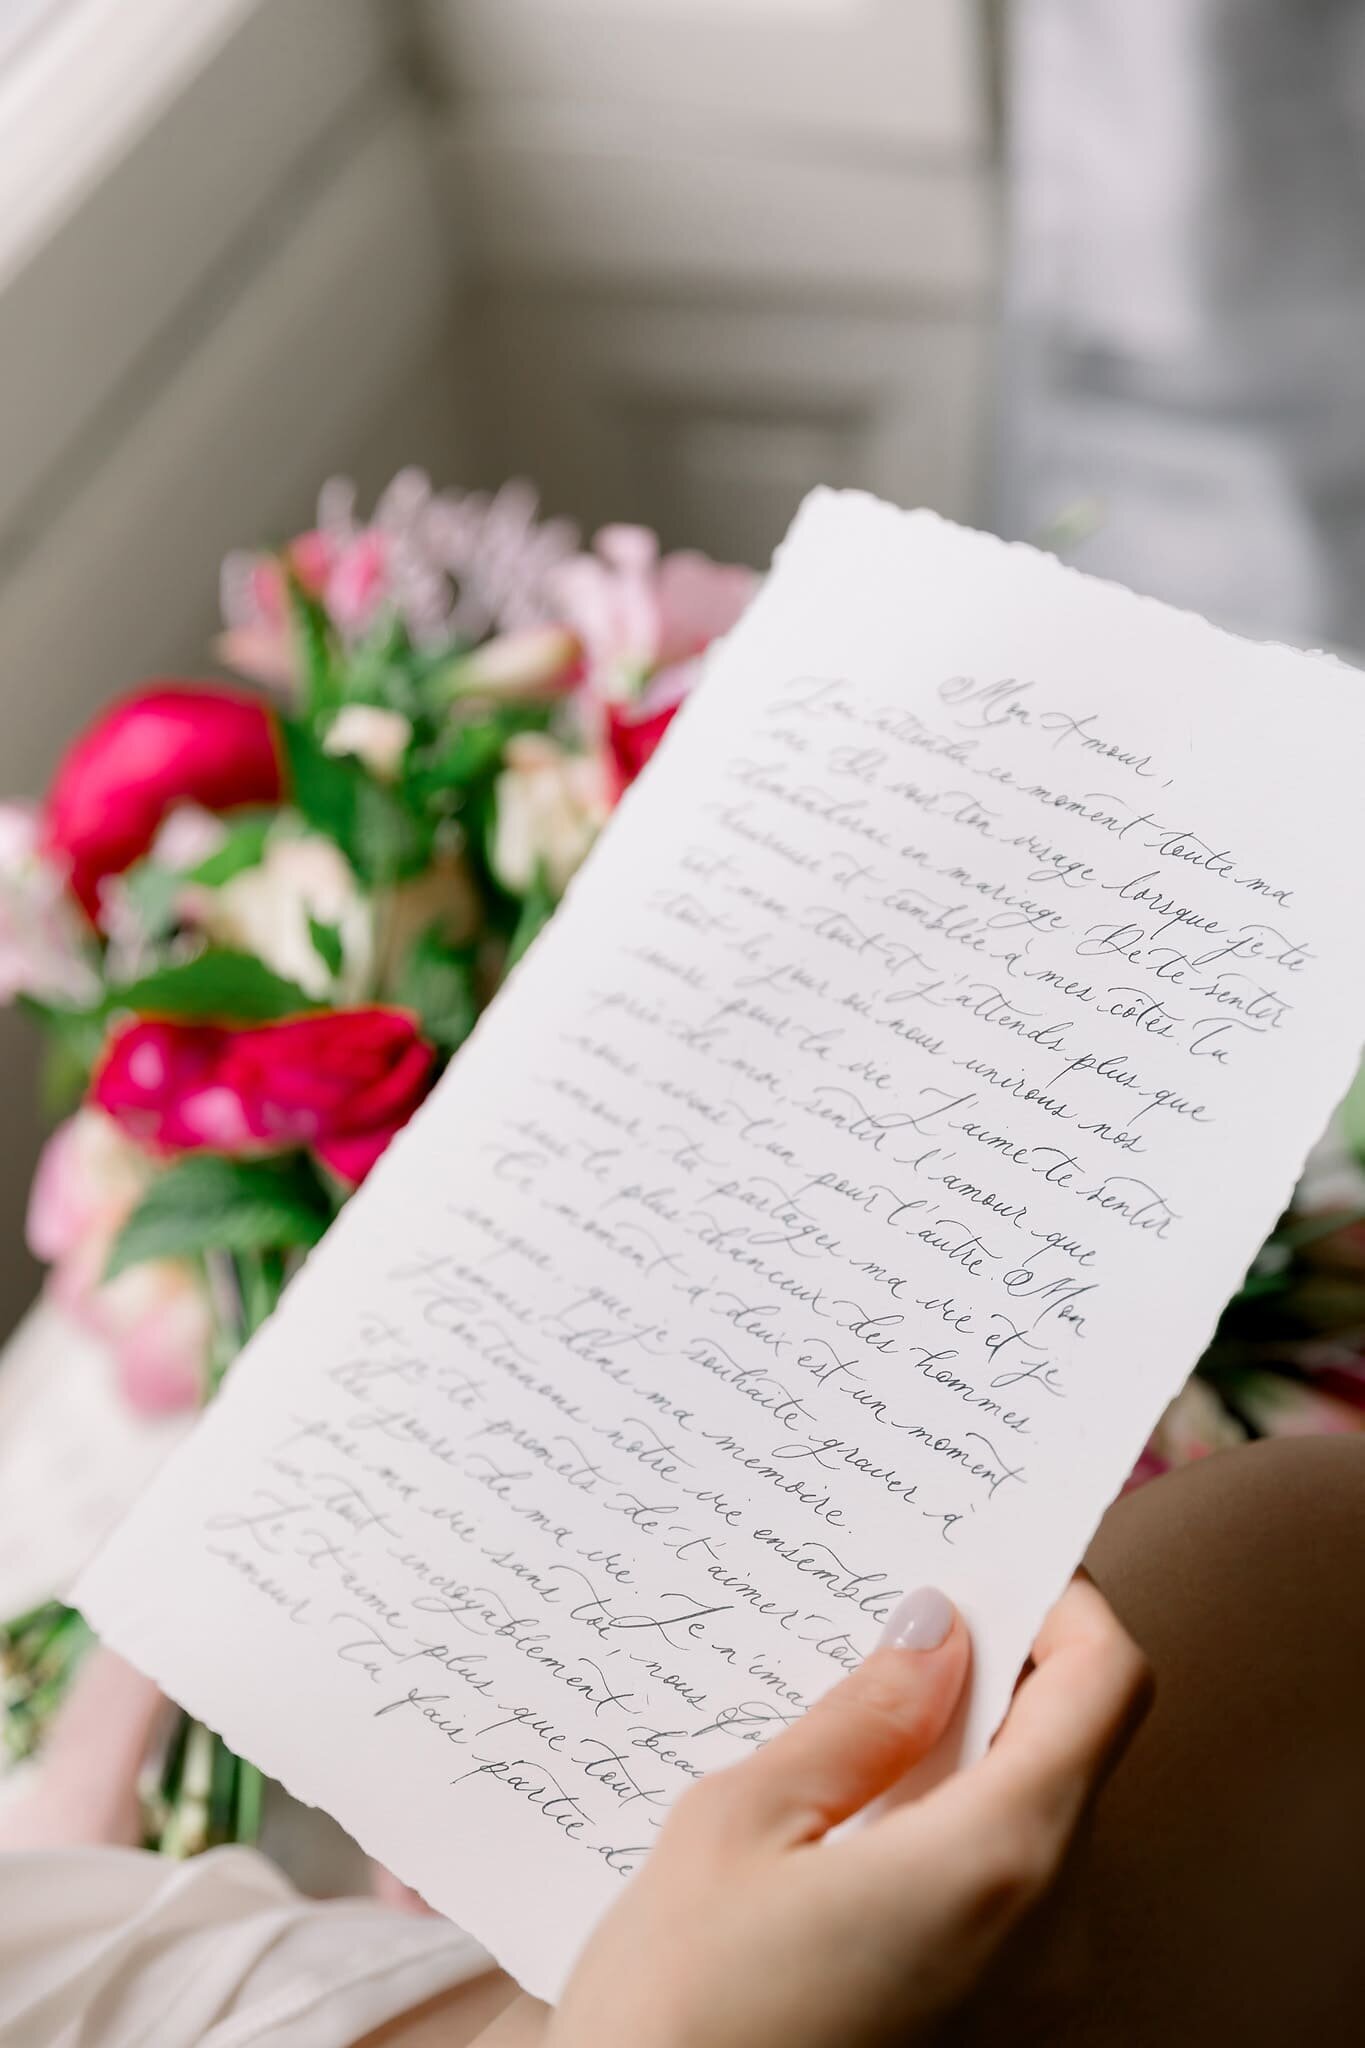 Mon Amour,
J'ai attendu ce moment toute ma
vie. De voir ton visage lorsque je te
demanderai en mariage. De te sentir
heureuse et comblée à mes côtés. Tu
est mon tout et j'attends plus que
tout le jour où nous unirons nos
pour la vie. J'aime te sentir
près de moi, sentir l'amour que
nous avons l'un pour l'autre. Mon
amour, tu partages ma vie et je
suis le plus chanceux des hommes.
Ce moment à deux est un moment
unique, que je souhaite graver à
jamais dans ma memoire.
Continuons notre vie ensemble
et je te promets de t'aimer tou
les jours de ma vie. Je n'ima
pas ma vie sans toi, nous
un tout incroyablement beau
Je t'aime plus que tout
amour tu fais partie de